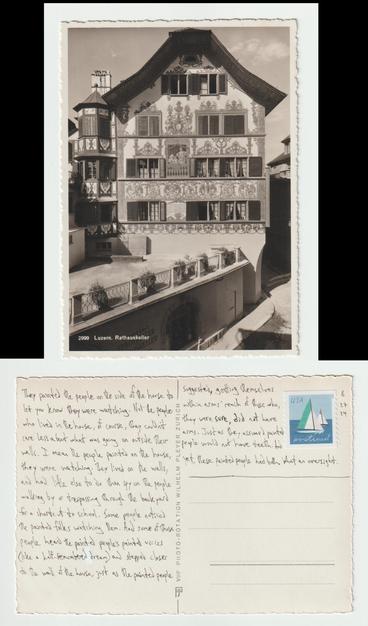 2999 Luzern, Rathauskeller
They painted the people on the side of the house to
let you know they were watching. Not the people
who lived in the house, of course, they couldn't
care less about what was going on outside their
walls. I mean the people painted on the house,
they were watching. They lived on the walls,
and had little else to do than spy on the people
walking by or trespassing through the backyard
for a shortcut to school. Some people noticed
the painted folks watching them. And some of those
people heard the painted people's painted voices
(like a half-remembered dream) and stepped closer
to the wall of the house, just as the painted people
suggested, getting themselves
within arms' reach of those who,
they were sure, did not have
arms. Just as they assumed painted
people would not have teeth. And
yet, these painted people had both, what an oversight.
VUP PHOTO-ROTATION WILHELM PLEYER ZURICH
USA
postcard
6
17
14